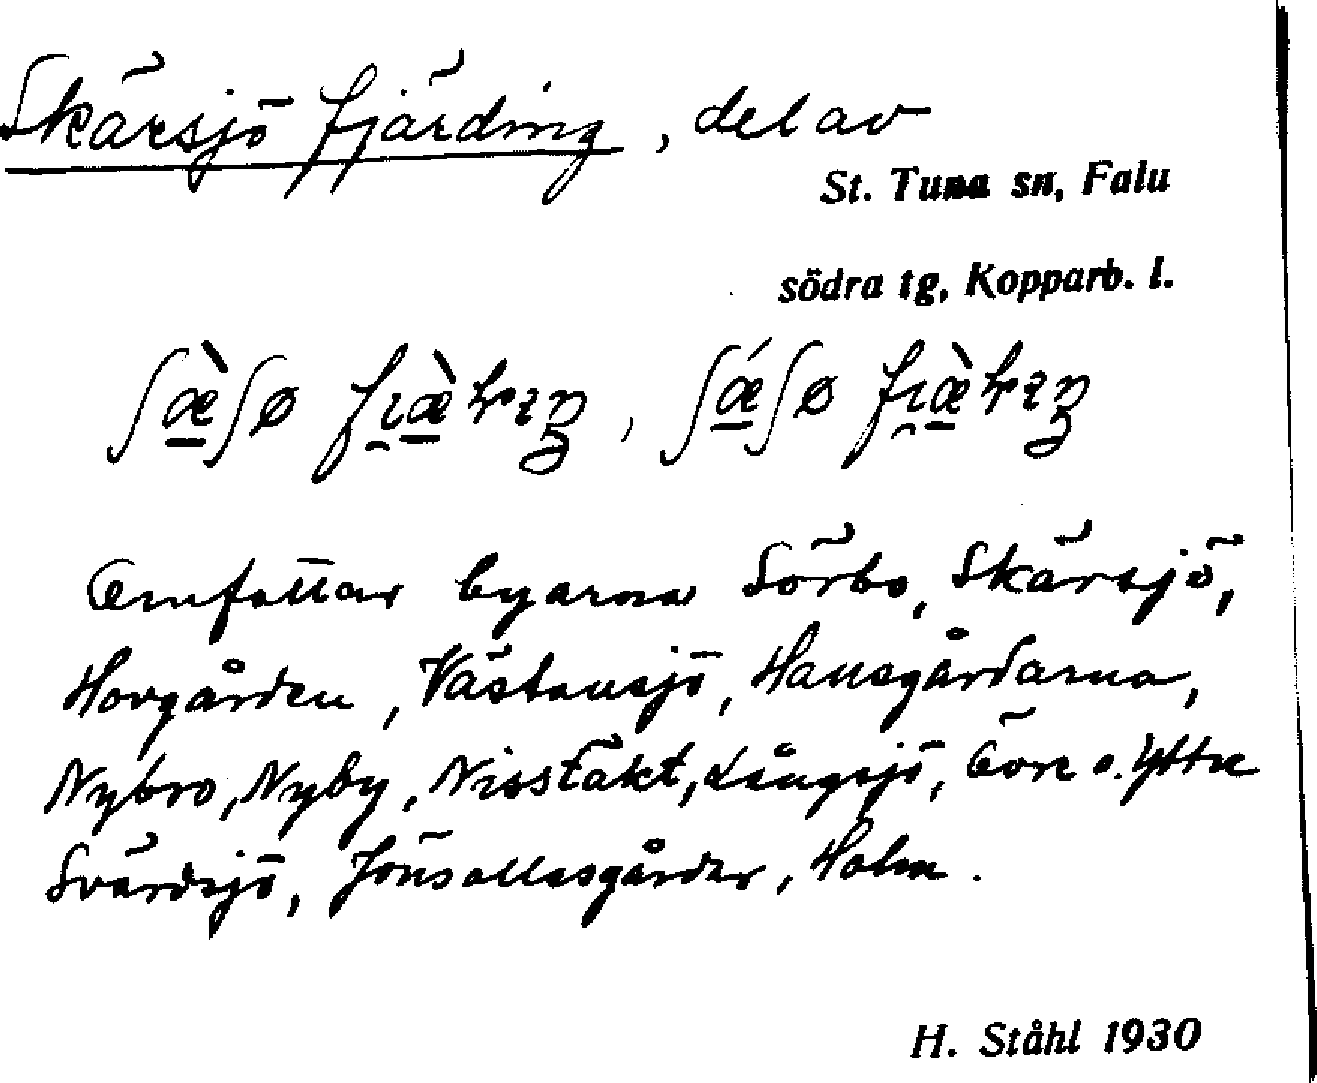 Skärsjö fjärding, del av
St. Tuna sn, Falu
södra tg, Kopparb. l.
Omfattar byarna Sörbo, Skärsjö,
Hovgården, Västansjö, Hansgårdarna,
Nybro, Nyby, Nisstäkt, Långsjö, Övre o. Yttre
Svärdsjö, Jönsollasgårdar, Holm.
H. Ståhl 1930